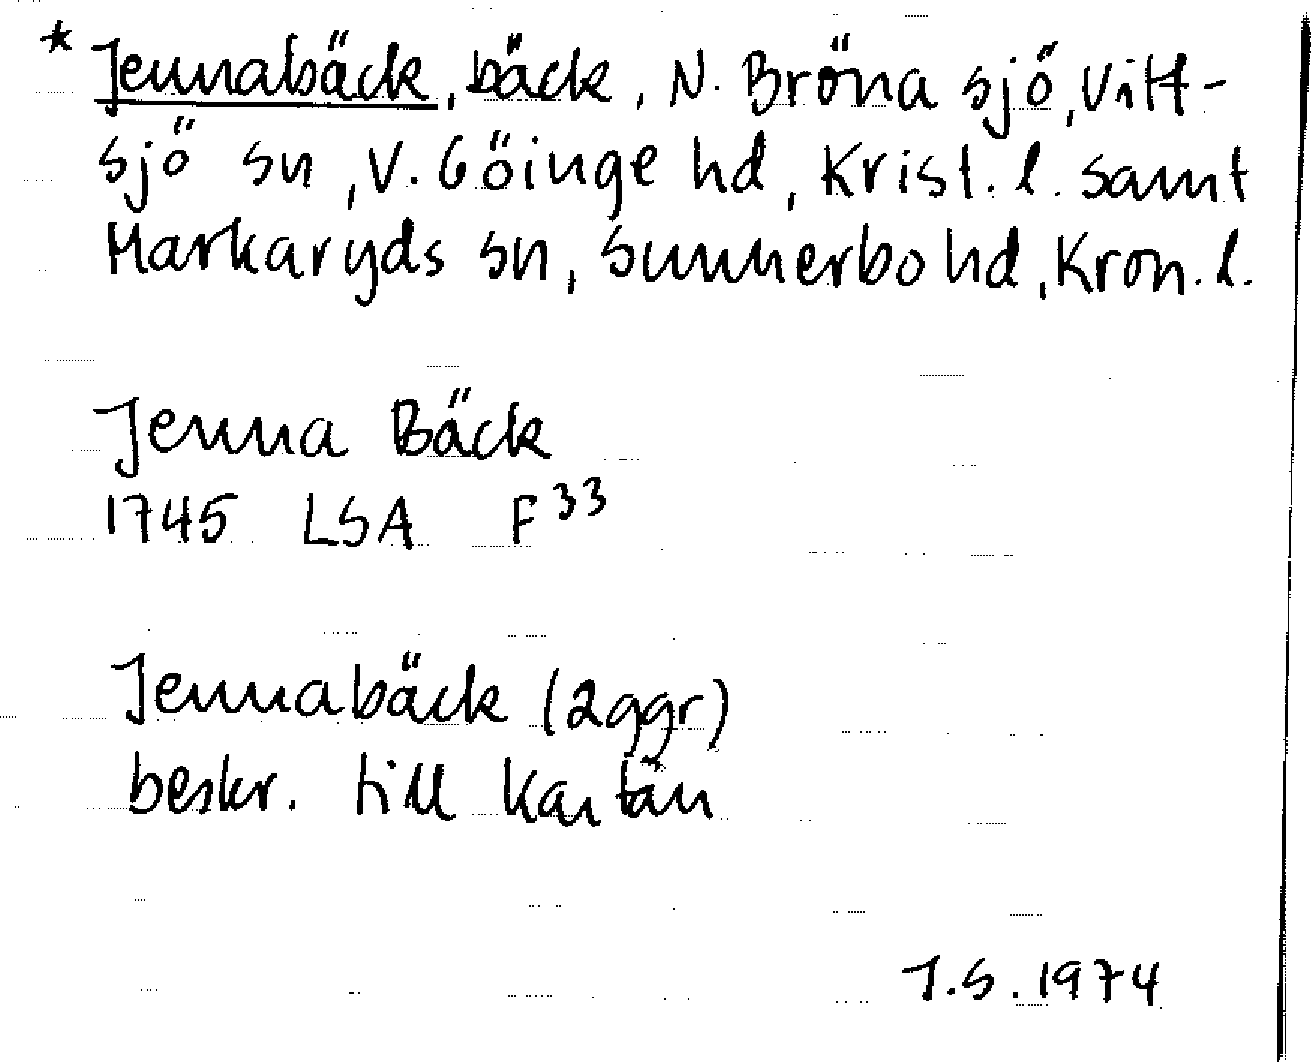 * Jennabäck, bäck, N. Bröna sjö, Vitt-
sjö sn, V. Göinge hd, Krist. l. samt
Markaryds sn, Sunnerbo hd, Kron. l.
Jenna Bäck
1745 LSA F³³
Jennabäck (2ggr)
beskr. till kartan
J.S. 1974